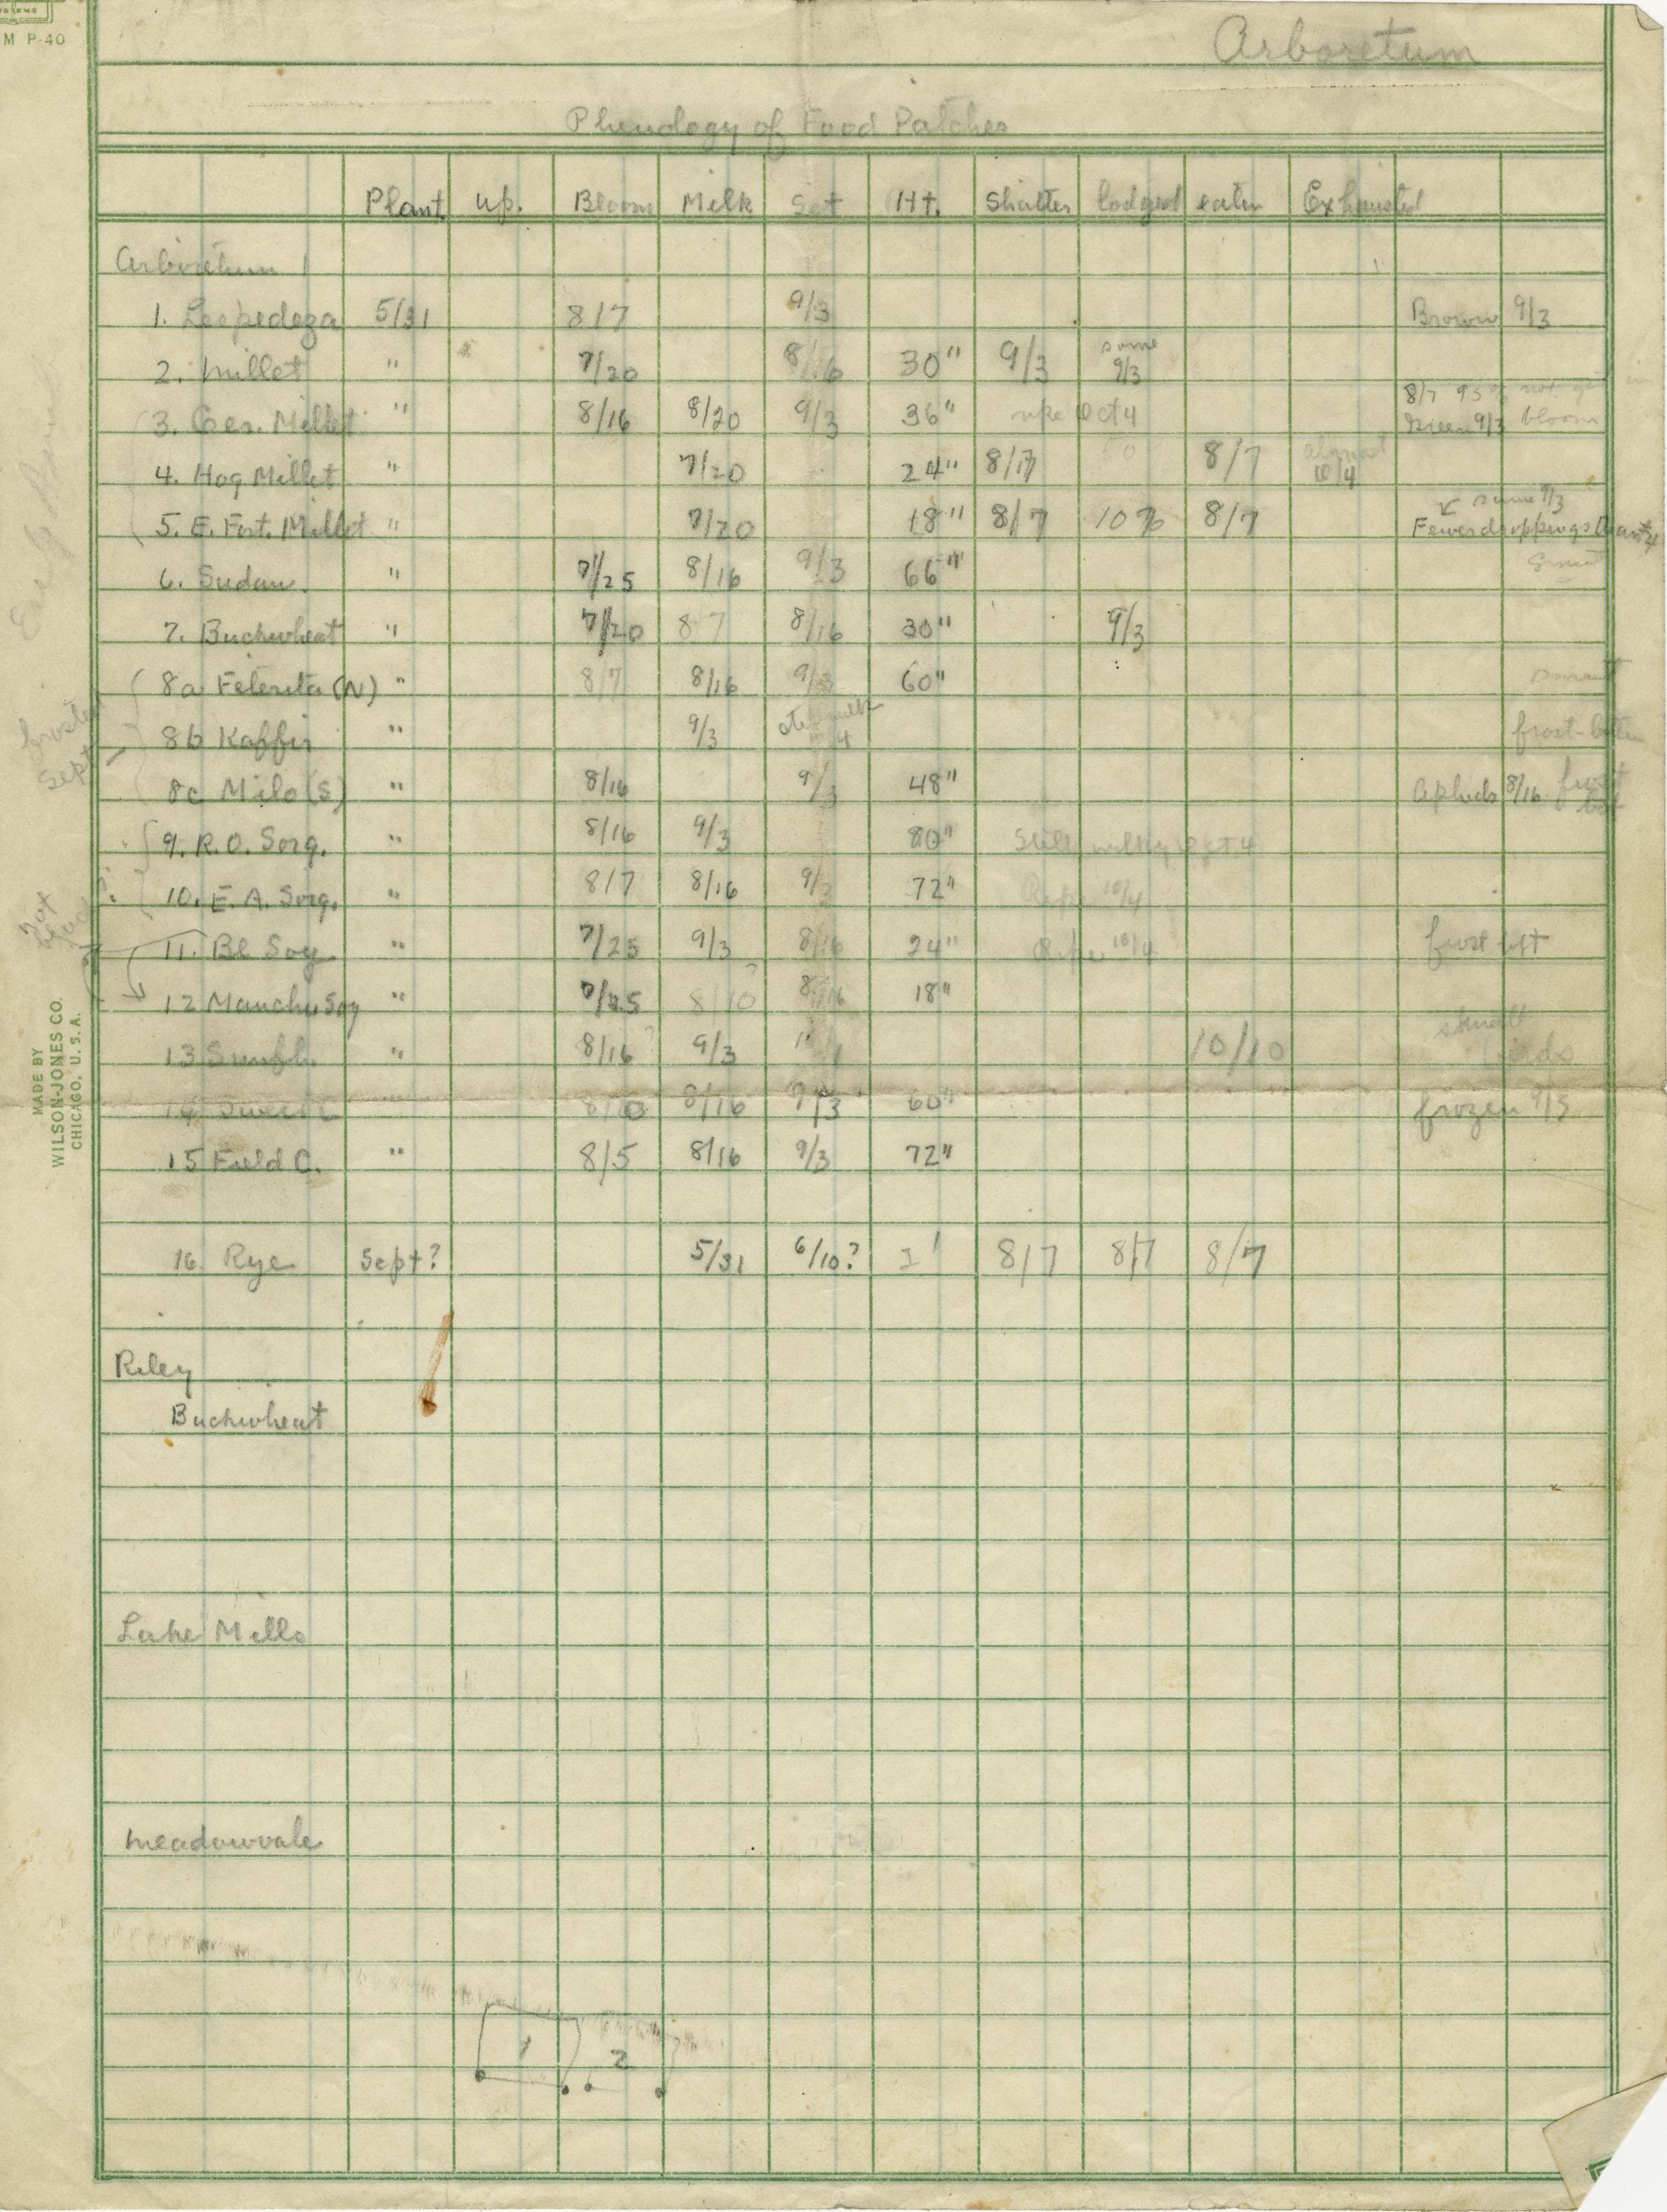 M P-40
Arboretum
Phenology of Food Patches
Plant up. Bloom Milk Set Ht. Shatter lodged eaten Exhausted
Arboretum
1. Lespedeza 5/31 8/7 9/3 Brown 9/3
some
2. Millet " 7/20 8/16 30" 9/3 9/3
8/7 95% not
3. Ger. Millet " 8/16 8/20 9/3 36" ripe Oct 4 Green 9/3 bloom
almost
4. Hog Millet " 7/20 24" 8/17 8/7 10/4
same 9/3
5. E. Fort. Millet " 7/20 18" 8/7 10% 8/7 Fewer droppings
6. Sudan " 7/25 8/16 9/3 66" Smut
7. Buckwheat " 7/20 8 7 8/16 30" 9/3
8a Feterita (N) " 8/7 8/16 9/3 60" smut
8b Kaffir " 9/3 still milk 4 frost-bitten
8c Milo (S) " 8/16 9/3 48" Aphids 8/16 frost
9. R.O. Sorg. " 8/16 9/3 80" Still milky Oct 4
10. E.A. Sorg. " 8/7 8/16 9/3 72" Ripe 10/4
11. Bl Soy " 7/25 9/3 8/16 24" Ripe 10/4 frost bit
12 Manchu Soy " 7/25 8/10 ? 8/16 18"
small
13 Sunfl. " 8/16 ? 9/3 10/10 birds
14 Sweet " 8/16 9/3 60" frozen 9/3
15 Field C. " 8/5 8/16 9/3 72"
16 Rye Sept? 5/31 6/10? 8/7 8/7 8/7
Riley
Buckwheat
Lake Mills
Meadowvale
1 2
frosted
Sept
MADE BY
WILSON-JONES CO.
CHICAGO, U. S. A.